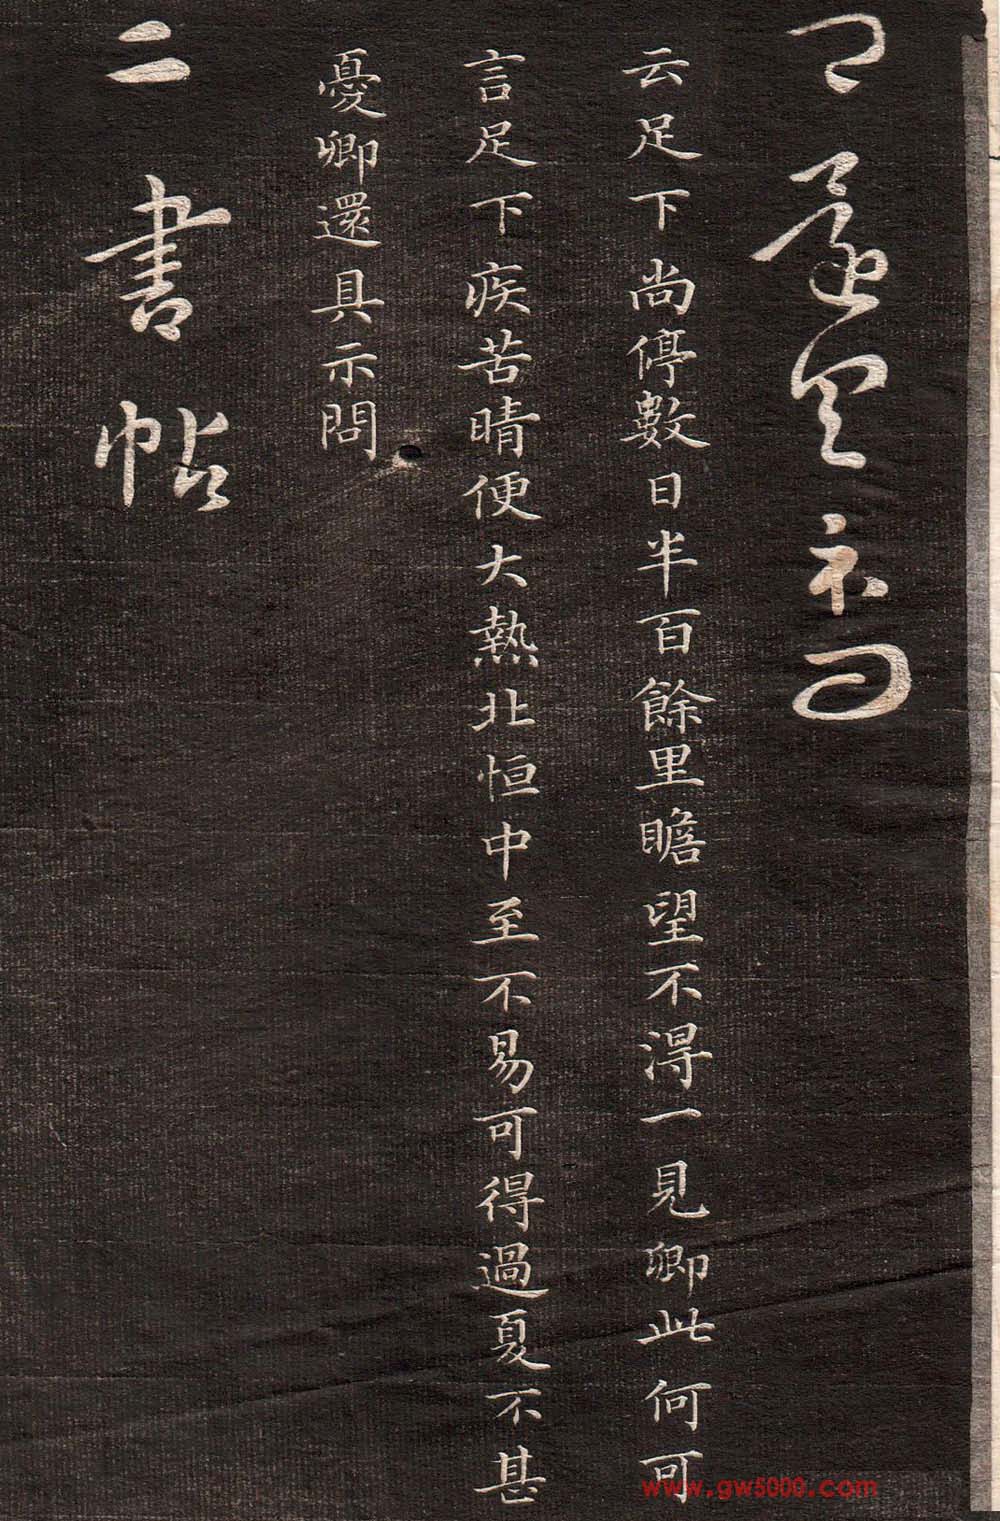 卿還具示問
云足下尚停數日半百餘里瞻望不得一見卿此何可
言足下疾苦晴便大熱北恒中至不易可得過夏不甚
憂卿還具示問
二書帖
www.gw5000.com